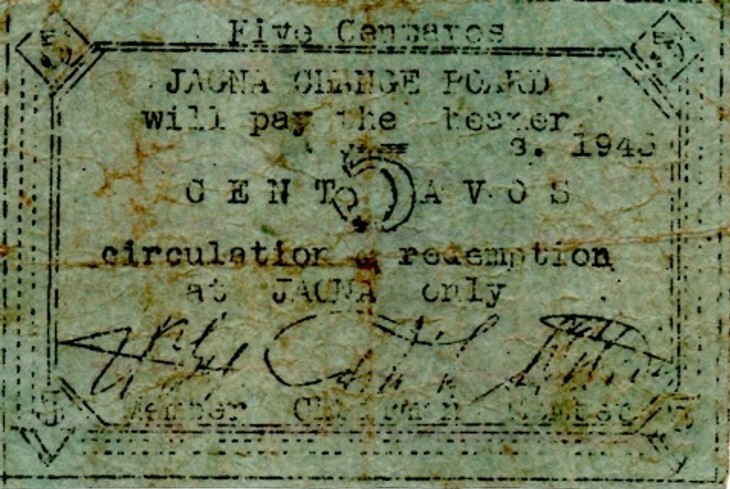 Five Centavos
5 5
JAGNA CHANGE BOARD
will pay the bearer
s. 1945
CENTAVOS
circulation & redemption
at JAGNA only
Member Chairman Member
5 5